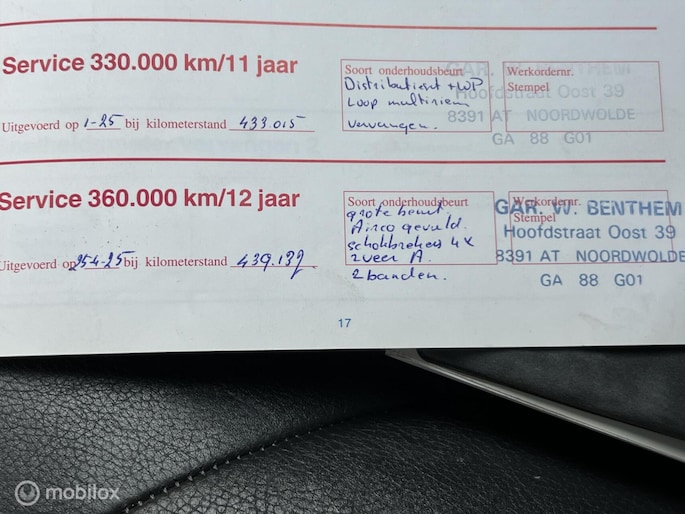 Service 330.000 km/11 jaar
Uitgevoerd op 1-25 bij kilometerstand 433.015
Soort onderhoudsbeurt
Distributieset + WP
Loop multiriem
vervangen.
Werkordernr.
Stempel
GAR. W. BENTHEM
Hoofdstraat Oost 39
8391 AT NOORDWOLDE
GA 88 G01
Service 360.000 km/12 jaar
Uitgevoerd op 25-4-25 bij kilometerstand 439.139
Soort onderhoudsbeurt
grote beurt.
Airco gevuld.
schokbrekers 4x
2 veer A.
2 banden.
Werkordernr.
Stempel
GAR. W. BENTHEM
Hoofdstraat Oost 39
8391 AT NOORDWOLDE
GA 88 G01
17
mobilox